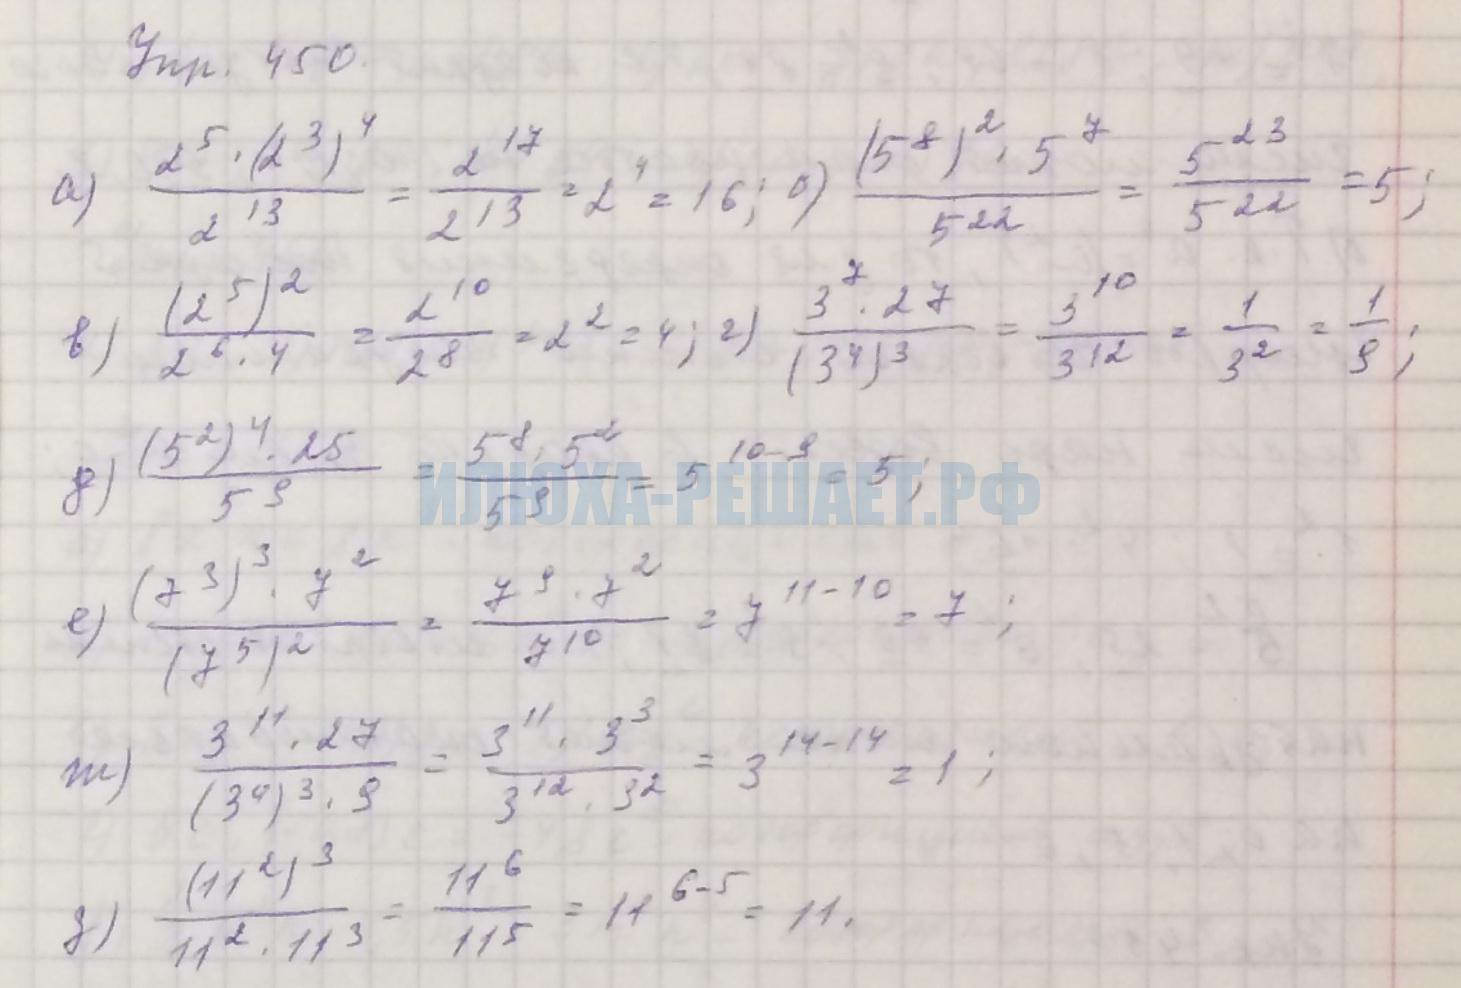 Упр. 450.
а) (2^5 · (2^3)^4)/(2^13) = 2^17/2^13 = 2^4 = 16; б) ((5^8)^2 · 5^7)/(5^22) = 5^23/5^22 = 5;
в) (2^5)^2/(2^6 · 4) = 2^10/2^8 = 2^2 = 4; г) (3^7 · 27)/((3^4)^3) = 3^10/3^12 = 1/3^2 = 1/9;
д) ((5^2)^4 · 25)/(5^9) = (5^8 · 5^2)/(5^9) = 5^(10-9) = 5;
ИЛЮХА-РЕШАЕТ.РФ
е) ((7^3)^3 · 7^2)/((7^5)^2) = (7^9 · 7^2)/(7^10) = 7^(11-10) = 7;
ж) (3^11 · 27)/((3^4)^3 · 9) = (3^11 · 3^3)/(3^12 · 3^2) = 3^(14-14) = 1;
з) (11^2)^3/(11^2 · 11^3) = 11^6/11^5 = 11^(6-5) = 11.